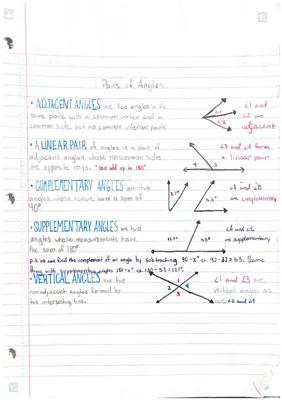 Pairs of Angles
• ADJACENT ANGLES are two angles in the
same plane with a common vertex and a
common side, but no common interior points
∠1
∠2
∠1 and
∠2 are
adjacent
• A LINEAR PAIR of angles is a pair of
adjacent angles whose noncommon sides
are opposite rays. *can add up to 180°
4 3
∠3 and ∠4 form
a linear pair
• COMPLEMENTARY ANGLES are two
angles whose measures have a sum of
90°
37°
53°
∠A and ∠B
are complementary
• SUPPLEMENTARY ANGLES are two
angles whose measurements have
the sum of 180°
127°
53°
are supplementary
p.s we can find the complement of an angle by subtracting 90-x° ex. 90-37=53. Same
thing with supplementary angles 180-x°
• VERTICAL ANGLES are two
nonadjacent angles formed by
two intersecting lines.
1
4 2
3
∠1 and ∠3 are
vertical angles as
are ∠2 and ∠4